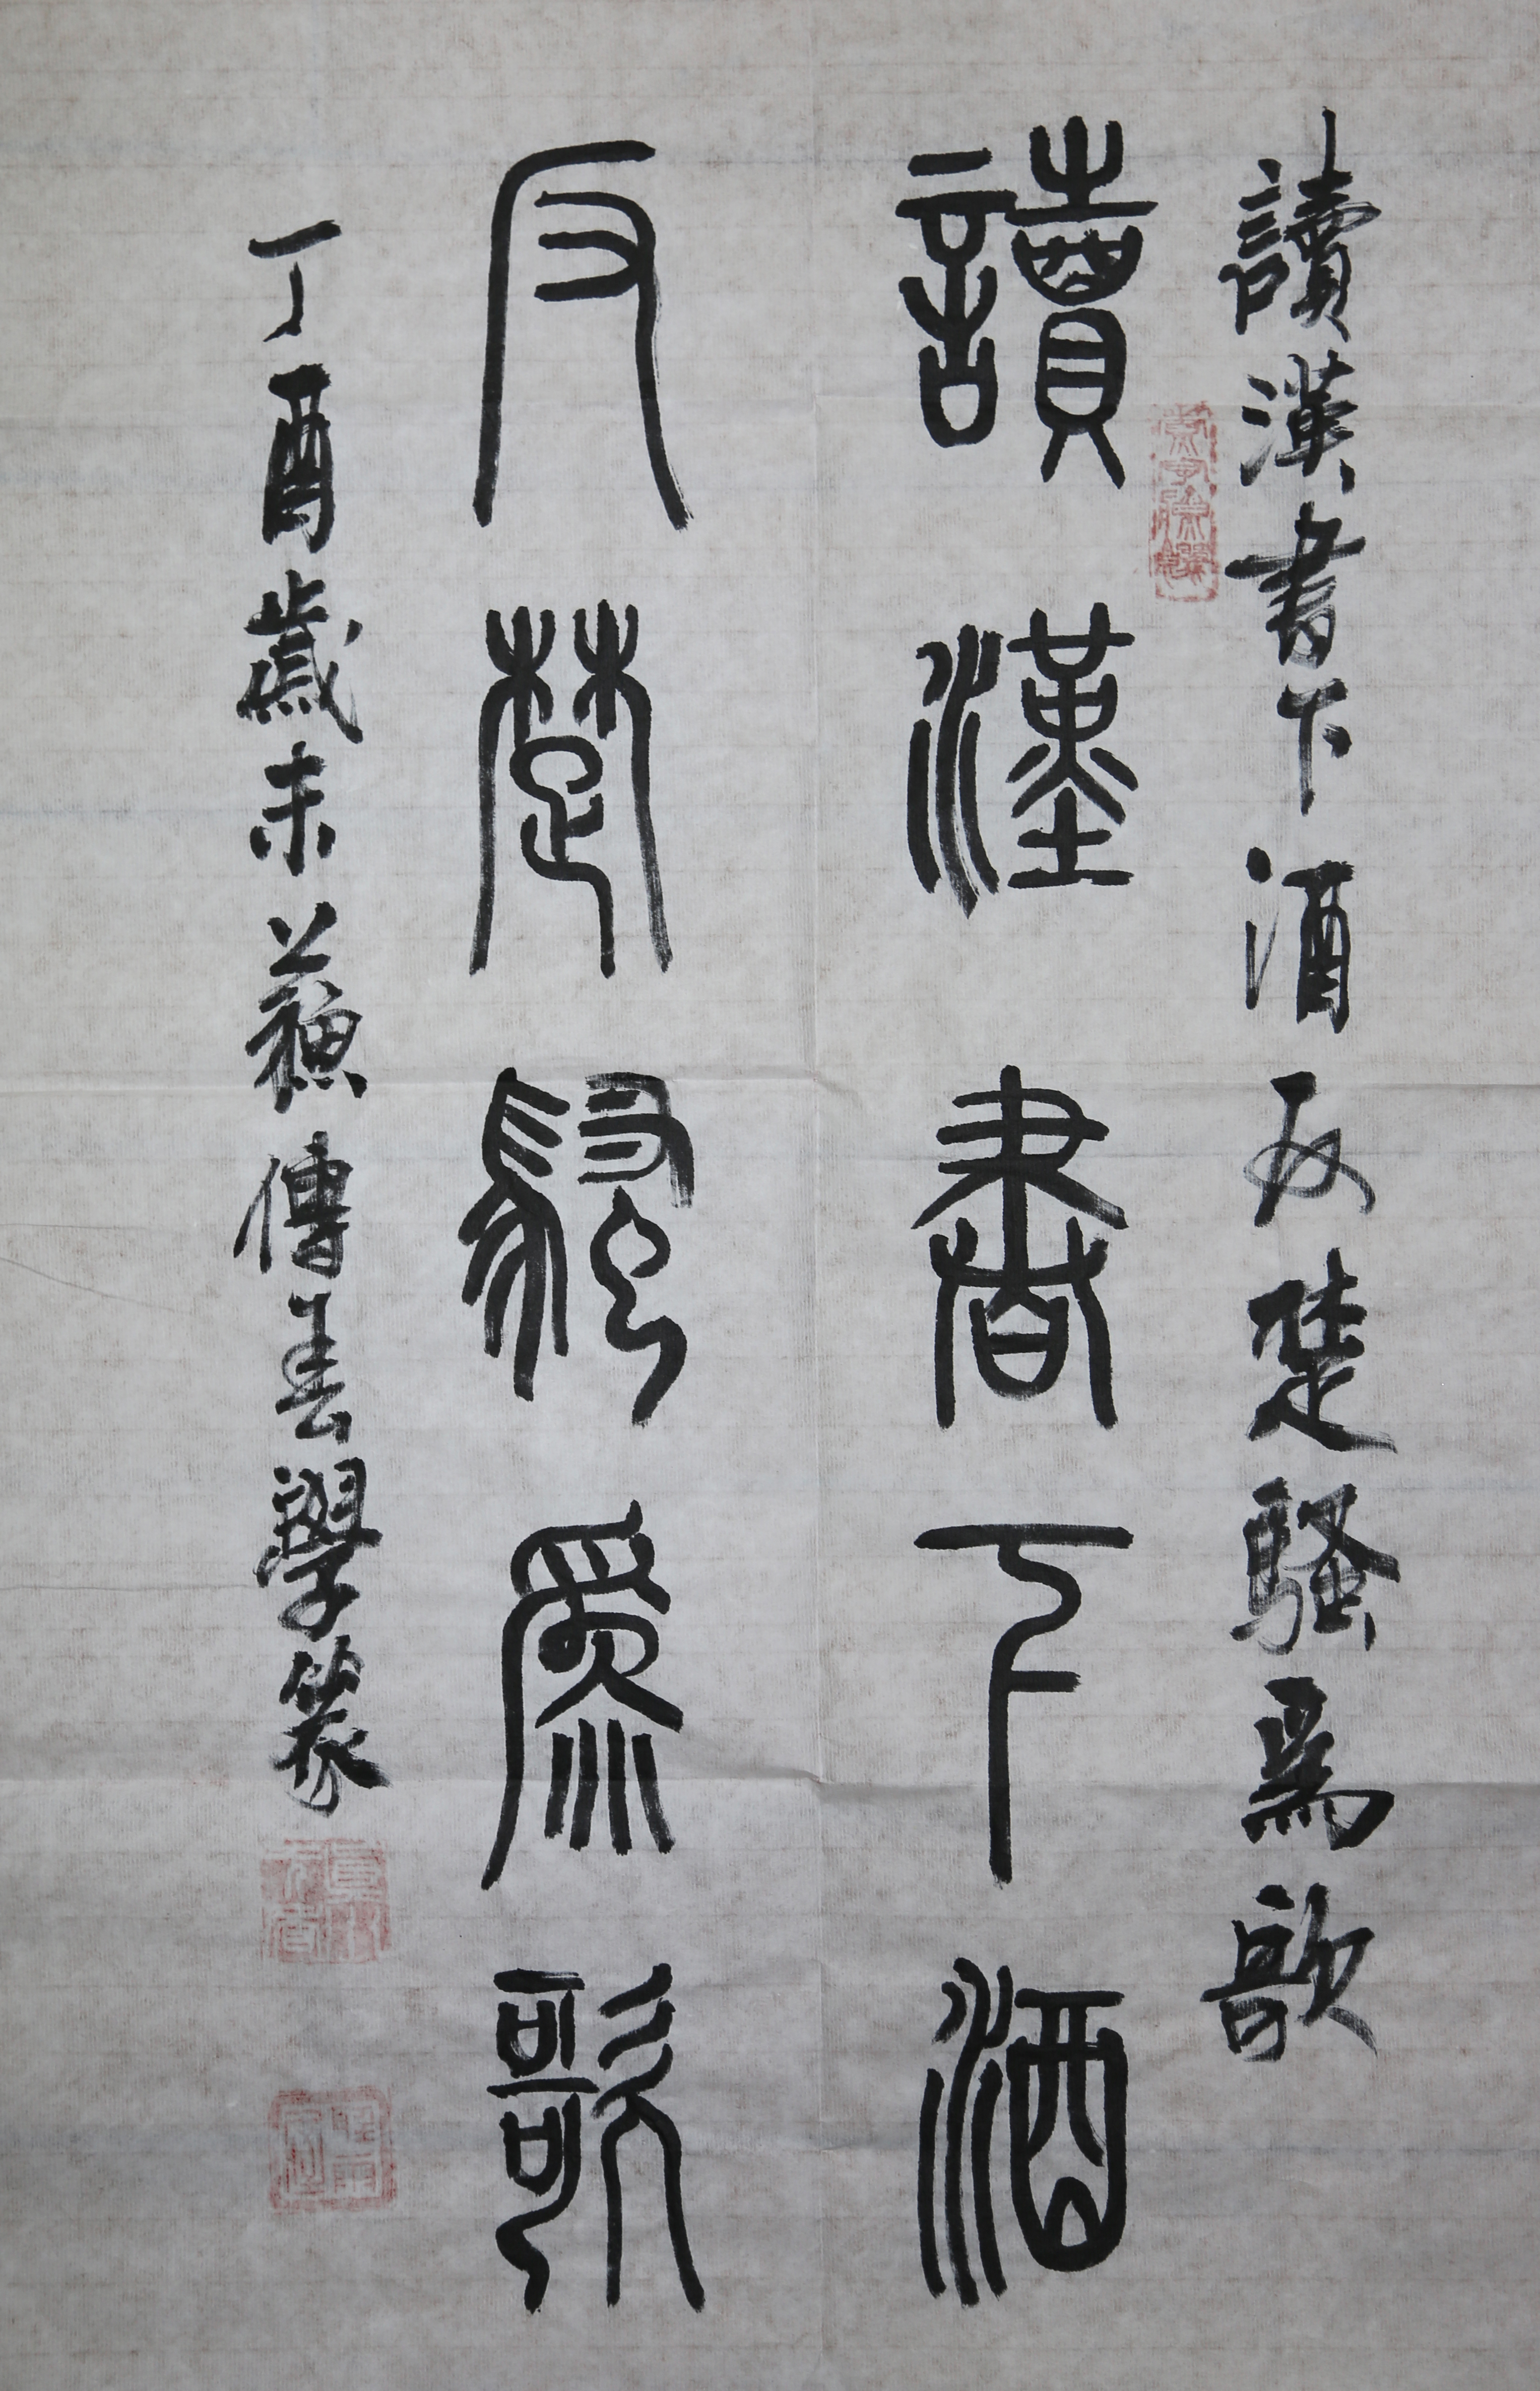 讀漢書下酒反楚騷爲歌
讀漢書下酒
反楚騷爲歌
丁酉歲末蘇傳善學篆